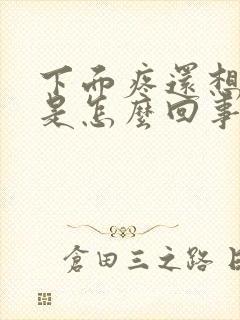 下面疼還想
是怎麼回事
倉田三之路